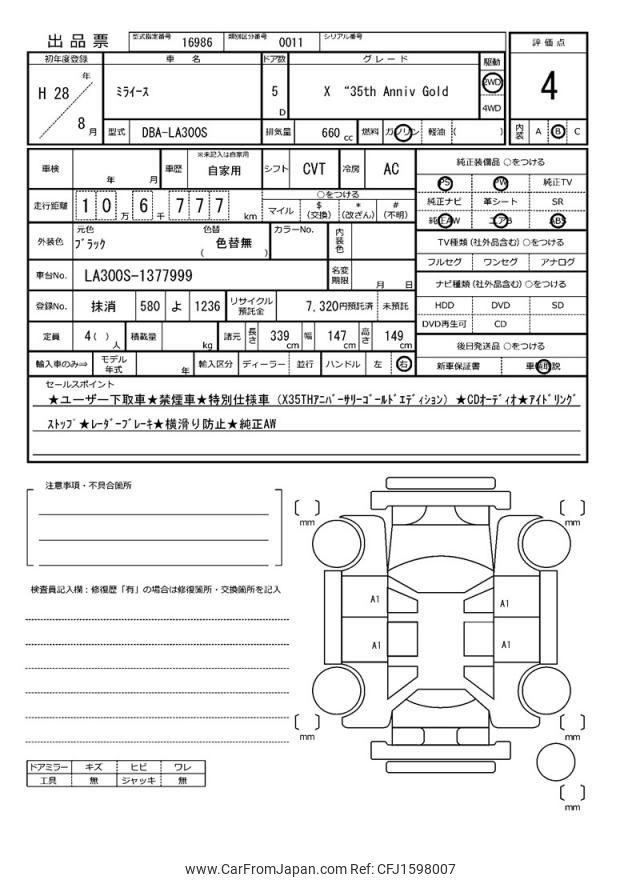 出品票 型式指定番号 16986 類別区分番号 0011 シリアル番号
評価点
4
初年度登録 車名 ドア数 グレード 駆動
H 28 年 8 月
ミライース
5 D
X “35th Anniv Gold
2WD
4WD
型式 DBA-LA300S 排気量 660 cc 燃料 ガソリン 軽油 ( )
内装 A B C
車検 年 月 車歴 ※未記入は自家用 自家用 シフト CVT 冷房 AC
走行距離 10万6千777 km
○をつける
マイル $(交換) *(改ざん) #(不明)
外装色 元色 ブラック 色替 色替無 ( ) カラーNo. 内装色
車台No. LA300S-1377999 名変期限 月 日
登録No. 抹消 580 よ 1236 リサイクル預託金 7,320円預託済 未預託
定員 4( )人 積載量 kg 諸元 長さ 339cm 幅 147cm 高さ 149cm
輸入車のみ⇒ モデル年式 年 輸入区分 ディーラー 並行 ハンドル 左 右
純正装備品 ○をつける
PS PW 純正TV
純正ナビ 革シート SR
純正AW エアB ABS
TV種類(社外品含む)○をつける
フルセグ ワンセグ アナログ
ナビ種類(社外品含む)○をつける
HDD DVD SD
DVD再生可 CD
後日発送品 ○をつける
新車保証書 車輌取説
セールスポイント
★ユーザー下取車★禁煙車★特別仕様車(X35THアニバーサリーゴールドエディション)★CDオーディオ★アイドリング
ストップ★レーダーブレーキ★横滑り防止★純正AW
注意事項・不具合箇所
検査員記入欄:修復歴「有」の場合は修復箇所・交換箇所を記入
ドアミラー キズ ヒビ ワレ
工具 無 ジャッキ 無
mm
mm
A1
A1
A1
A1
mm
mm
mm
www.CarFromJapan.com Ref: CFJ1598007